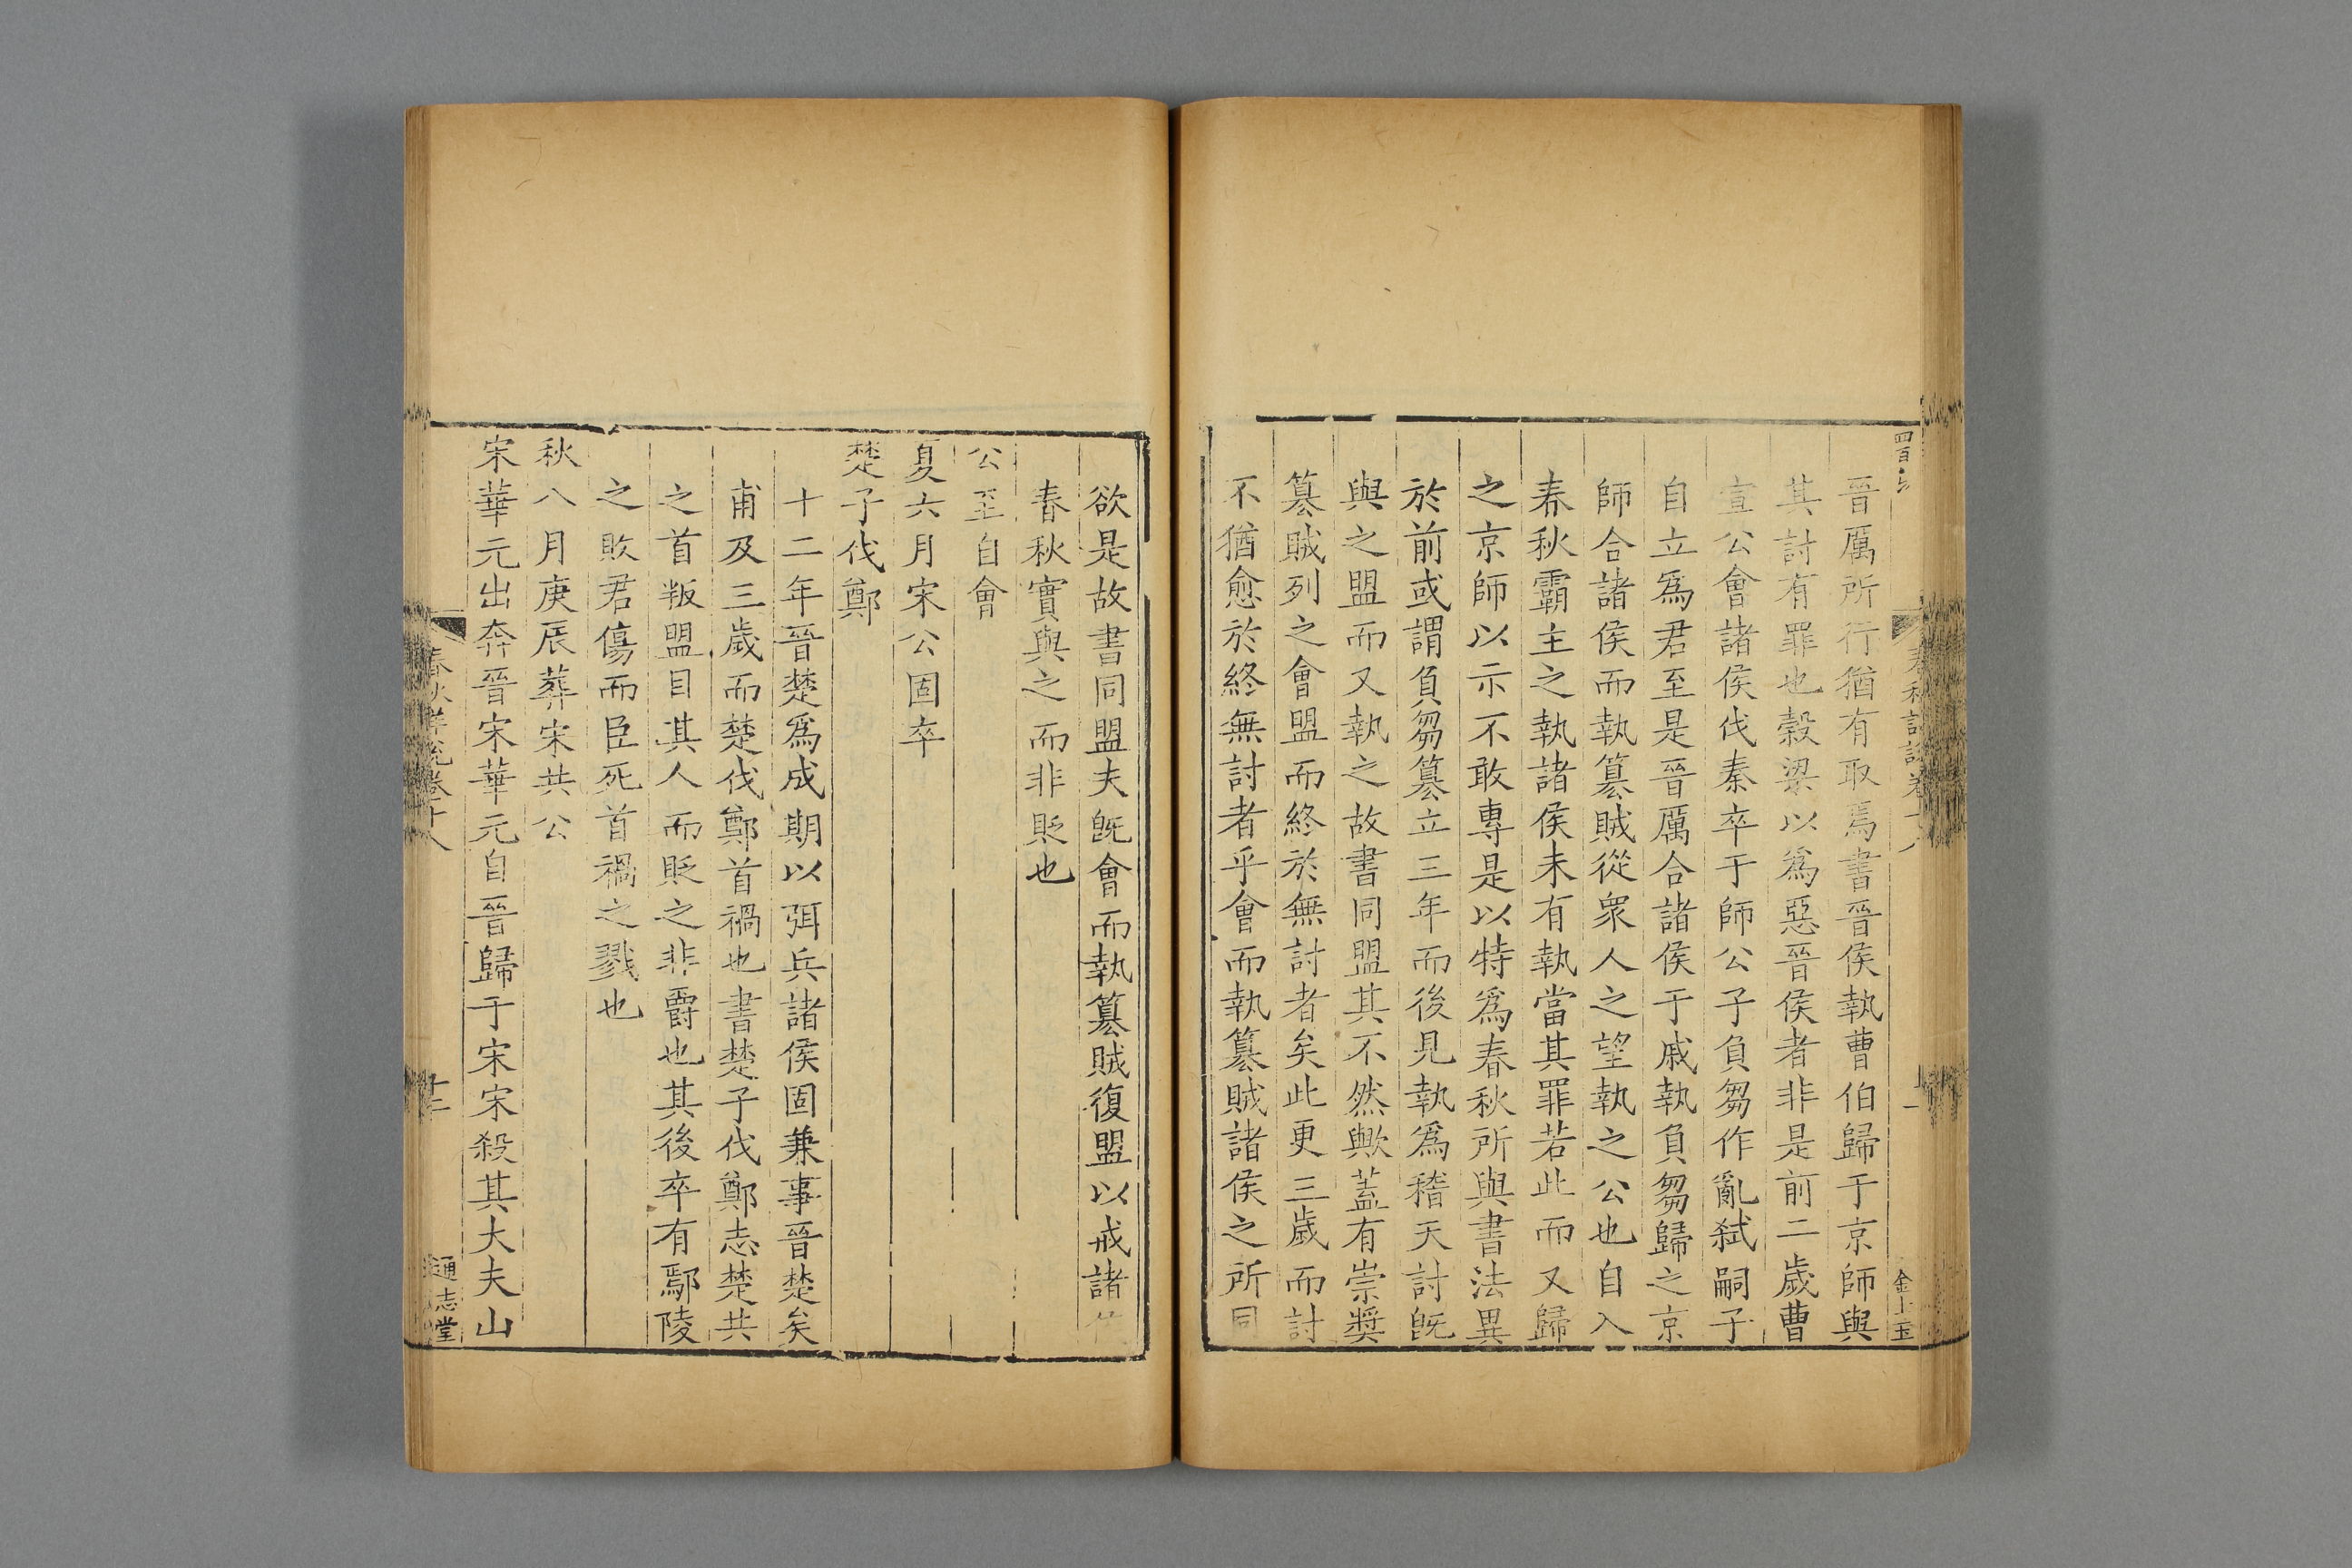 晉厲所行猶有取焉書晉侯執曹伯歸于京師與
其討有罪也榖梁以為惡晉侯者非是前二歲曹
宣公會諸侯伐秦卒于師公子負芻作亂弑嗣子
自立爲君至是晉厲合諸侯于戚執負芻歸之京
師合諸侯而執簒賊從衆人之望執之公也自入
春秋霸主之執諸侯未有執當其罪若此而又歸
之京師以示不敢專是以特爲春秋所與書法異
於前或謂負芻簒立三年而後見執爲稽天討旣
與之盟而又執之故書同盟其不然歟蓋有崇奬
簒賊列之會盟而終於無討者矣此更三歲而討
不猶愈於終無討者乎會而執簒賊諸侯之所同
欲是故書同盟夫旣會而執簒賊復盟以戒諸
春秋實與之而非貶也
公至自會
夏六月宋公固卒
楚子伐鄭
十二年晉楚爲成期以弭兵諸侯固兼事晉楚矣
甫及三歲而楚伐鄭首禍也書楚子伐鄭志楚共
之首叛盟目其人而貶之非爵也其後卒有鄢陵
之敗君傷而臣死首禍之戮也
秋八月庚辰葬宋共公
宋華元出奔晉宋華元自晉歸于宋宋殺其大夫山
春秋詳說卷十八
十二
通志堂